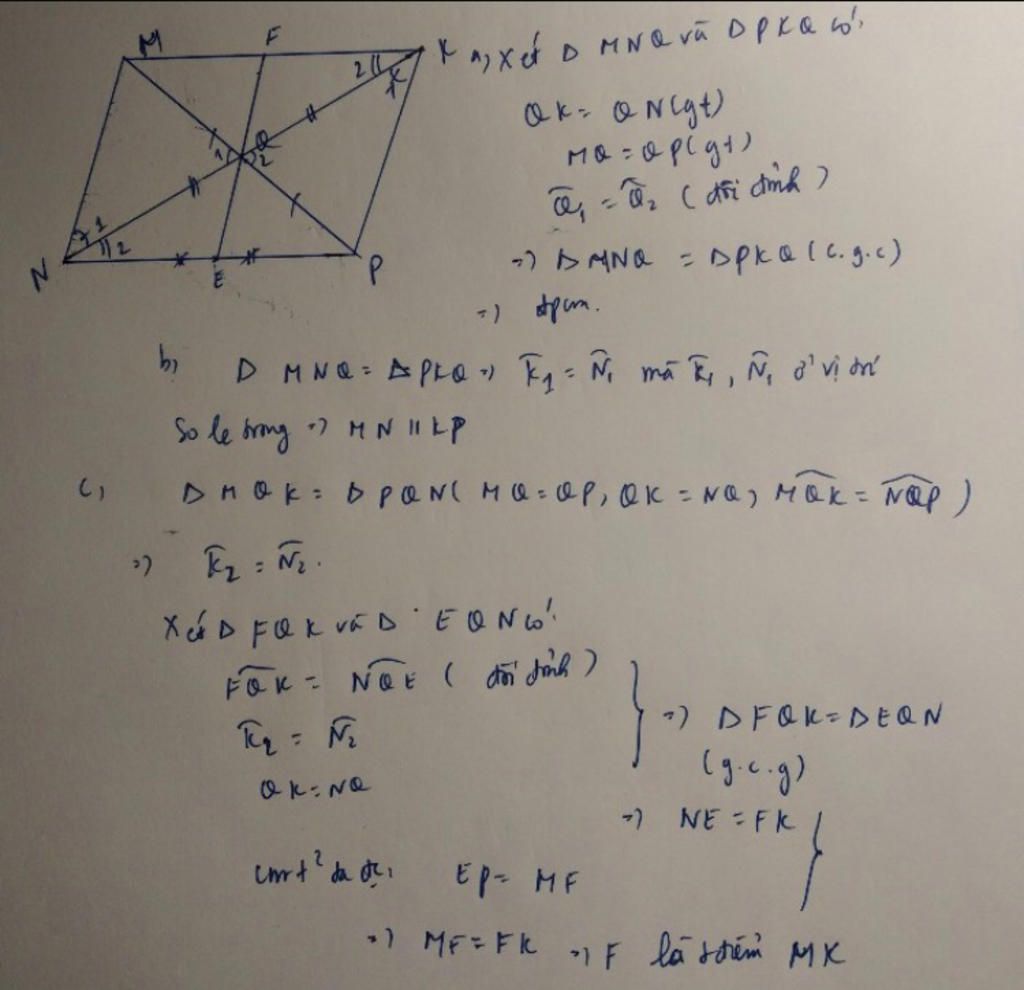 M F K
2 K
Q
1 2
1
2
N E P
a, Xét Δ MNQ và Δ PKQ có:
QK = QN (gt)
MQ = QP (gt)
Q̂₁ = Q̂₂ (đối đỉnh)
=> Δ MNQ = Δ PKQ (c.g.c)
=> đpcm.
b, Δ MNQ = Δ PKQ => K̂₁ = N̂₁ mà K̂₁, N̂₁ ở vị trí
So le trong => MN || KP
c, Δ MQK = Δ PQN ( MQ = QP, QK = NQ, MQK̂ = NQP̂ )
=> K̂₂ = N̂₂.
Xét Δ FQK và Δ EQN có:
FQK̂ = NQÊ ( đối đỉnh )
K̂₂ = N̂₂
QK = NQ
=> Δ FQK = Δ EQN
(g.c.g)
=> NE = FK
cmt² ta đc: EP = MF
=> MF = FK => F là tđiểm MK